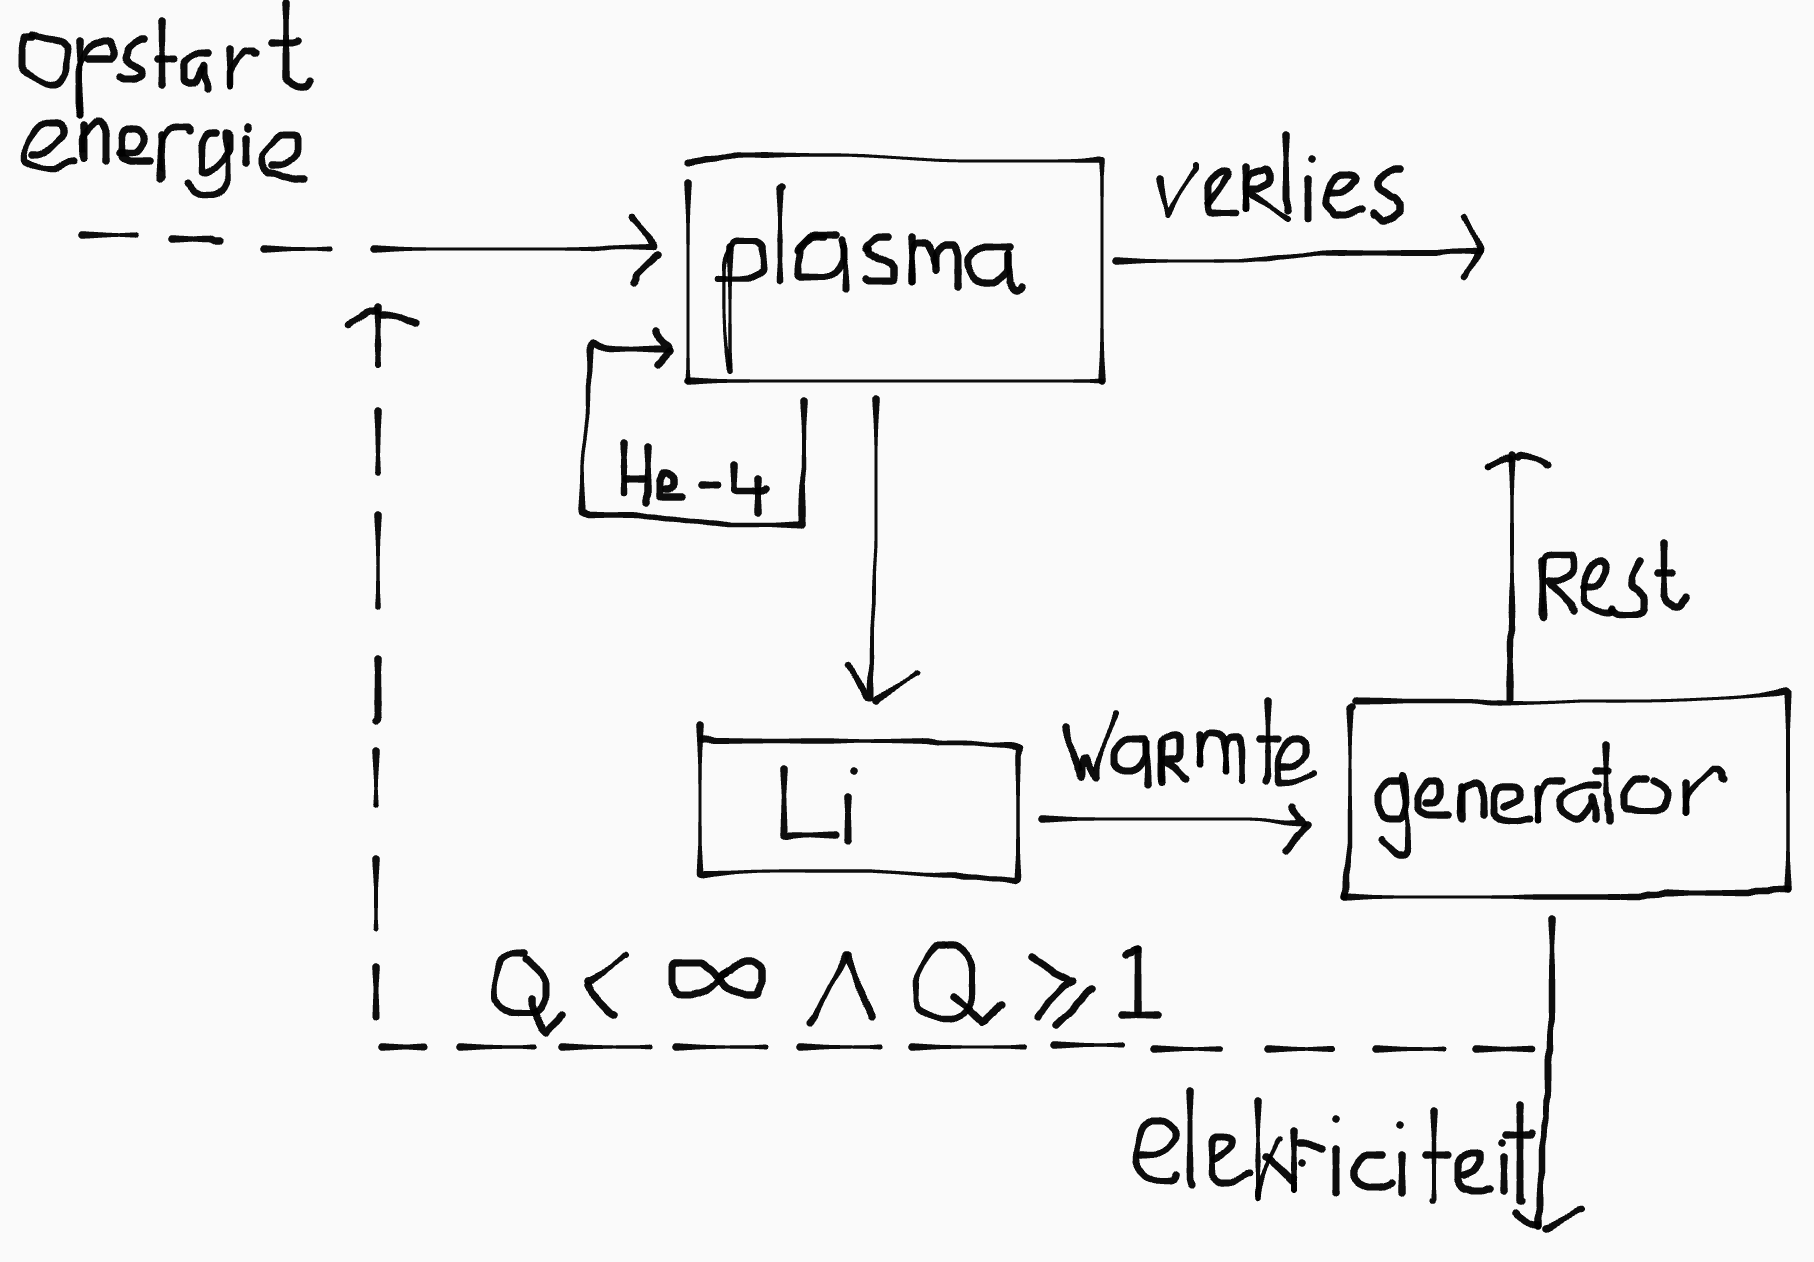 opstart
energie
plasma
verlies
He-4
Rest
Li
warmte
generator
Q < ∞ ∧ Q ⩾ 1
elektriciteit